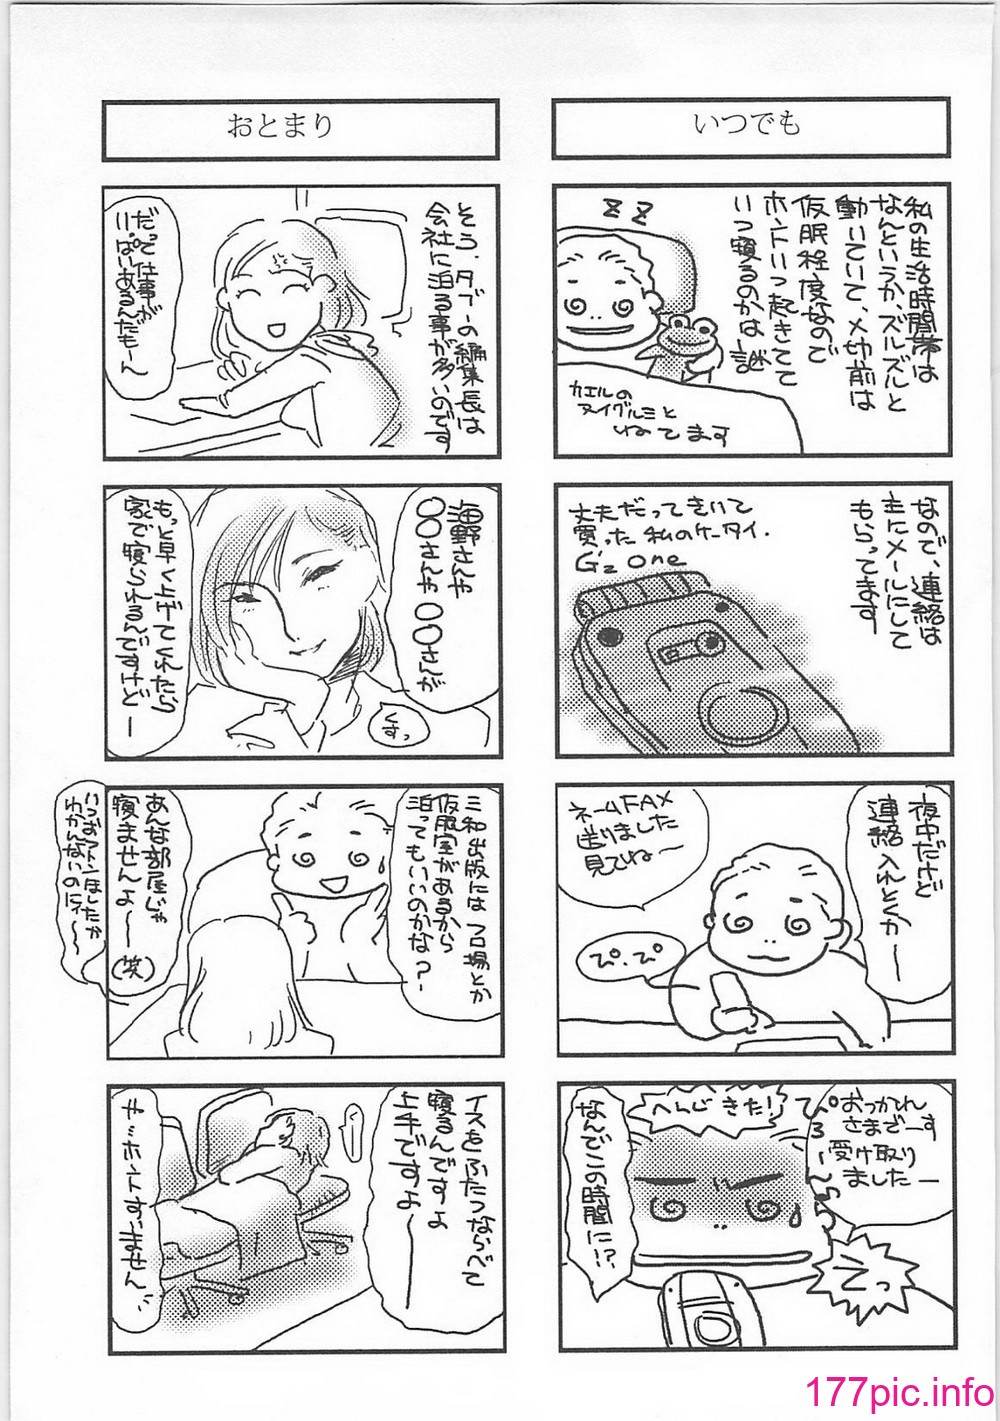 いつでも
私の生活時間帯は
なんというか、ズルズルと
動いていて、〆切前は
仮眠程度なので
ホントいつ起きてて
いつ寝るのかは謎
ZZ
カエルの
ヌイグルミと
ねてます
なので、連絡は
主にメールにして
もらってます
丈夫だってきいて
買った私のケータイ.
G'z One
夜中だけど
連絡入れとくかー
ネームFAX
送りました
見てねー
ぴ.ぴ
おつかれ
さまでーす
受け取り
ましたー
ぴろーん
へんじきた!
なんでこの時間に!?
おとまり
そう.タブーの編集長は
会社に泊る事が多いのです
だって仕事が
いっぱいあるんだもーん
海野さんや
〇〇さんや〇〇さんが
もっと早く上げてくれたら
家で寝られるんですけどー
くすっ
三和出版にはフロ場とか
仮眠室があるから
泊ってもいいのかな?
あんな部屋じゃ
寝ませんよ――(笑)
いつおフトンほしたか
わかんないのにネ~
イスをふたつならべて
寝るんですよ
上手ですよ――
や…ホントすいません
177pic.info